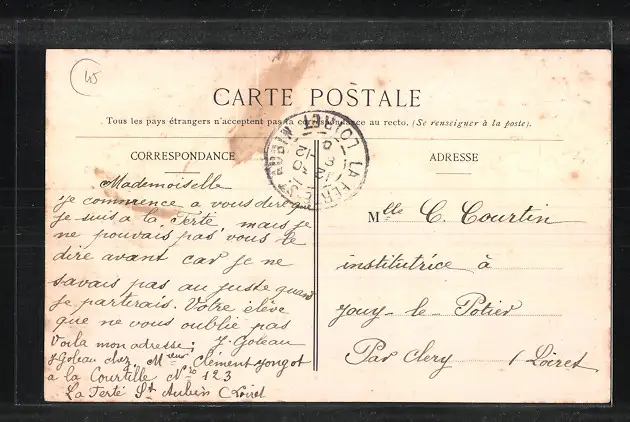 CARTE POSTALE
Tous les pays étrangers n'acceptent pas la correspondance au recto. (Se renseigner à la poste).
CORRESPONDANCE
Mademoiselle
Je commence a vous dire que
je suis a la Ferté mais je
ne pouvais pas vous le
dire avant car je ne
savais pas au juste quand
je partirais. Votre élève
que ne vous oublié pas
Voila mon adresse; J. Goleau
J. Goleau chez Mseur Clément
a la Courtille No 123
La Ferté St Aubin (Loiret
ADRESSE
Mlle C. Courtin
institutrice à
Jouy-le-Potier
Par Clery Loiret
LA FERTÉ ST AUBIN
LOIRET